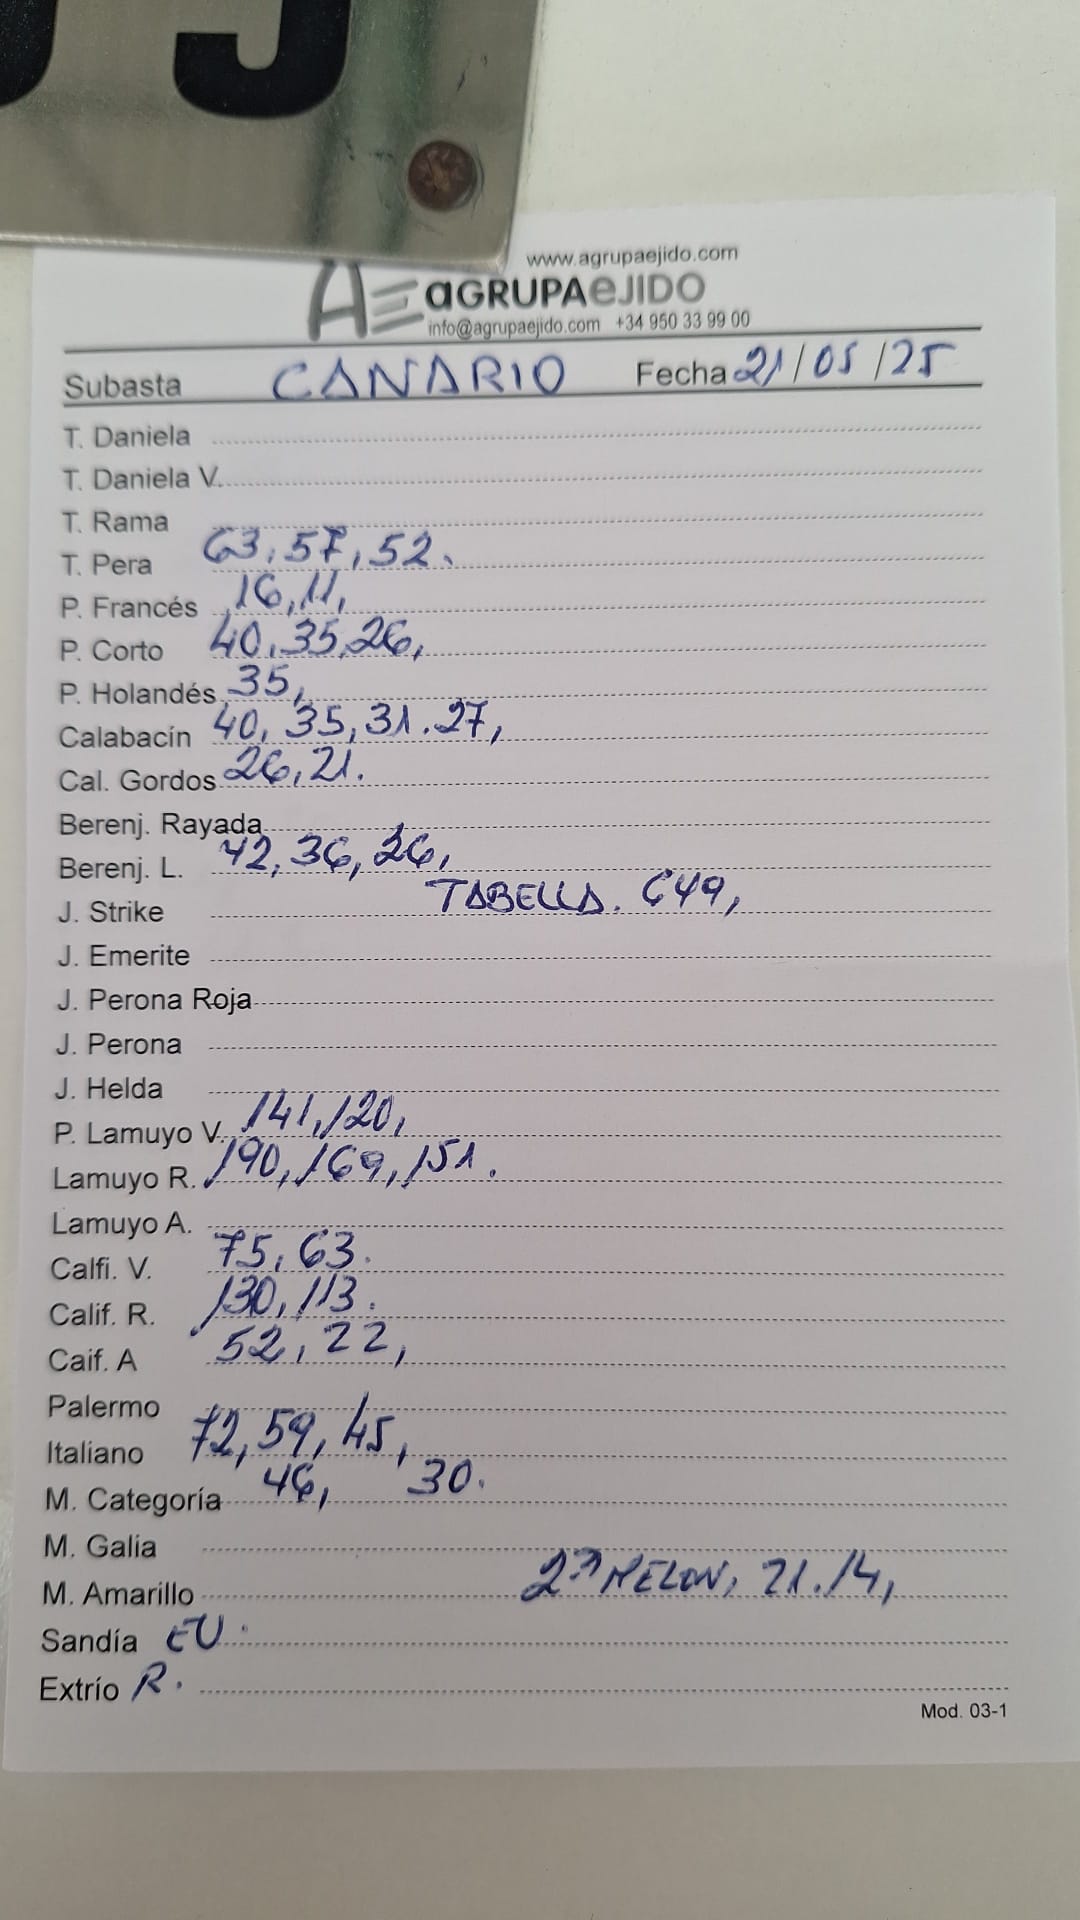 www.agrupaejido.com
AE aGRUPAeJIDO
info@agrupaejido.com +34 950 33 99 00
Subasta CANARIO Fecha 21/05/25
T. Daniela
T. Daniela V.
T. Rama
T. Pera 63, 57, 52.
P. Francés 16, 11,
P. Corto 40, 35, 26,
P. Holandés 35,
Calabacín 40, 35, 31. 27,
Cal. Gordos 26, 21.
Berenj. Rayada
Berenj. L. 42, 36, 26,
J. Strike TABELLA. 649,
J. Emerite
J. Perona Roja
J. Perona
J. Helda
P. Lamuyo V. 141, 120,
Lamuyo R. 190, 169, 151.
Lamuyo A.
Calfi. V. 75, 63.
Calif. R. 130, 113.
Caif. A 52, 22,
Palermo
Italiano 72, 59, 45,
M. Categoría 46, 30.
M. Galia
M. Amarillo 2ª MELON, 21. 14,
Sandía
Extrío R.
Mod. 03-1